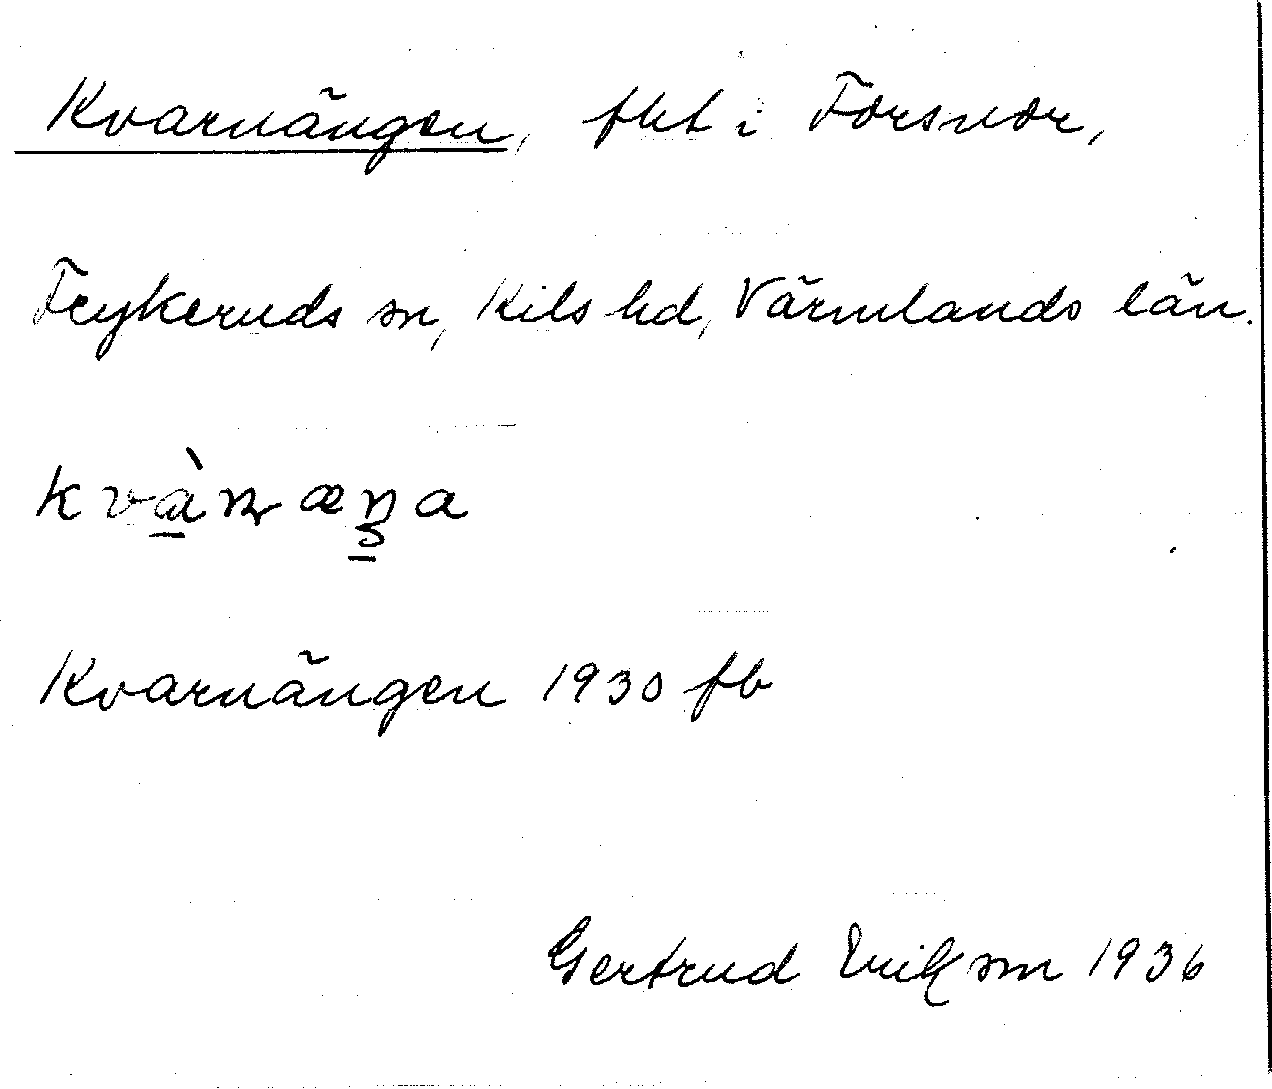 Kvarnängen, fkt i Forsnor,
Frykeruds sn, Kils hd, Värmlands län.
kvàɳæŋa
Kvarnängen 1930 fb
Gertrud Erikson 1936